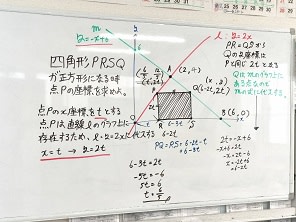 m
y=-x+6
y
l: y=2x
四角形PRSQ
が正方形になる時
点Pの座標を求めよ。
点Pのx座標をtとする
点Pは直線lのグラフ上に
存在するため、l: y=2xに代入する
x=t → y=2t
A(2,4)
6
P
Q(6-2t, 2t)
2t
O
R
6-3t
S
B(6,0)
x
PR=QSから
Qの座標は
Pと同じ2tとなる
Qはmのグラフ上に
ある点なので
mの式に代入する。
PQ=RS=6-2t-t
=6-3t
6-3t=2t
-5t=-6
5t=6
2t=-x+6
x+2t=6
x=6-2t